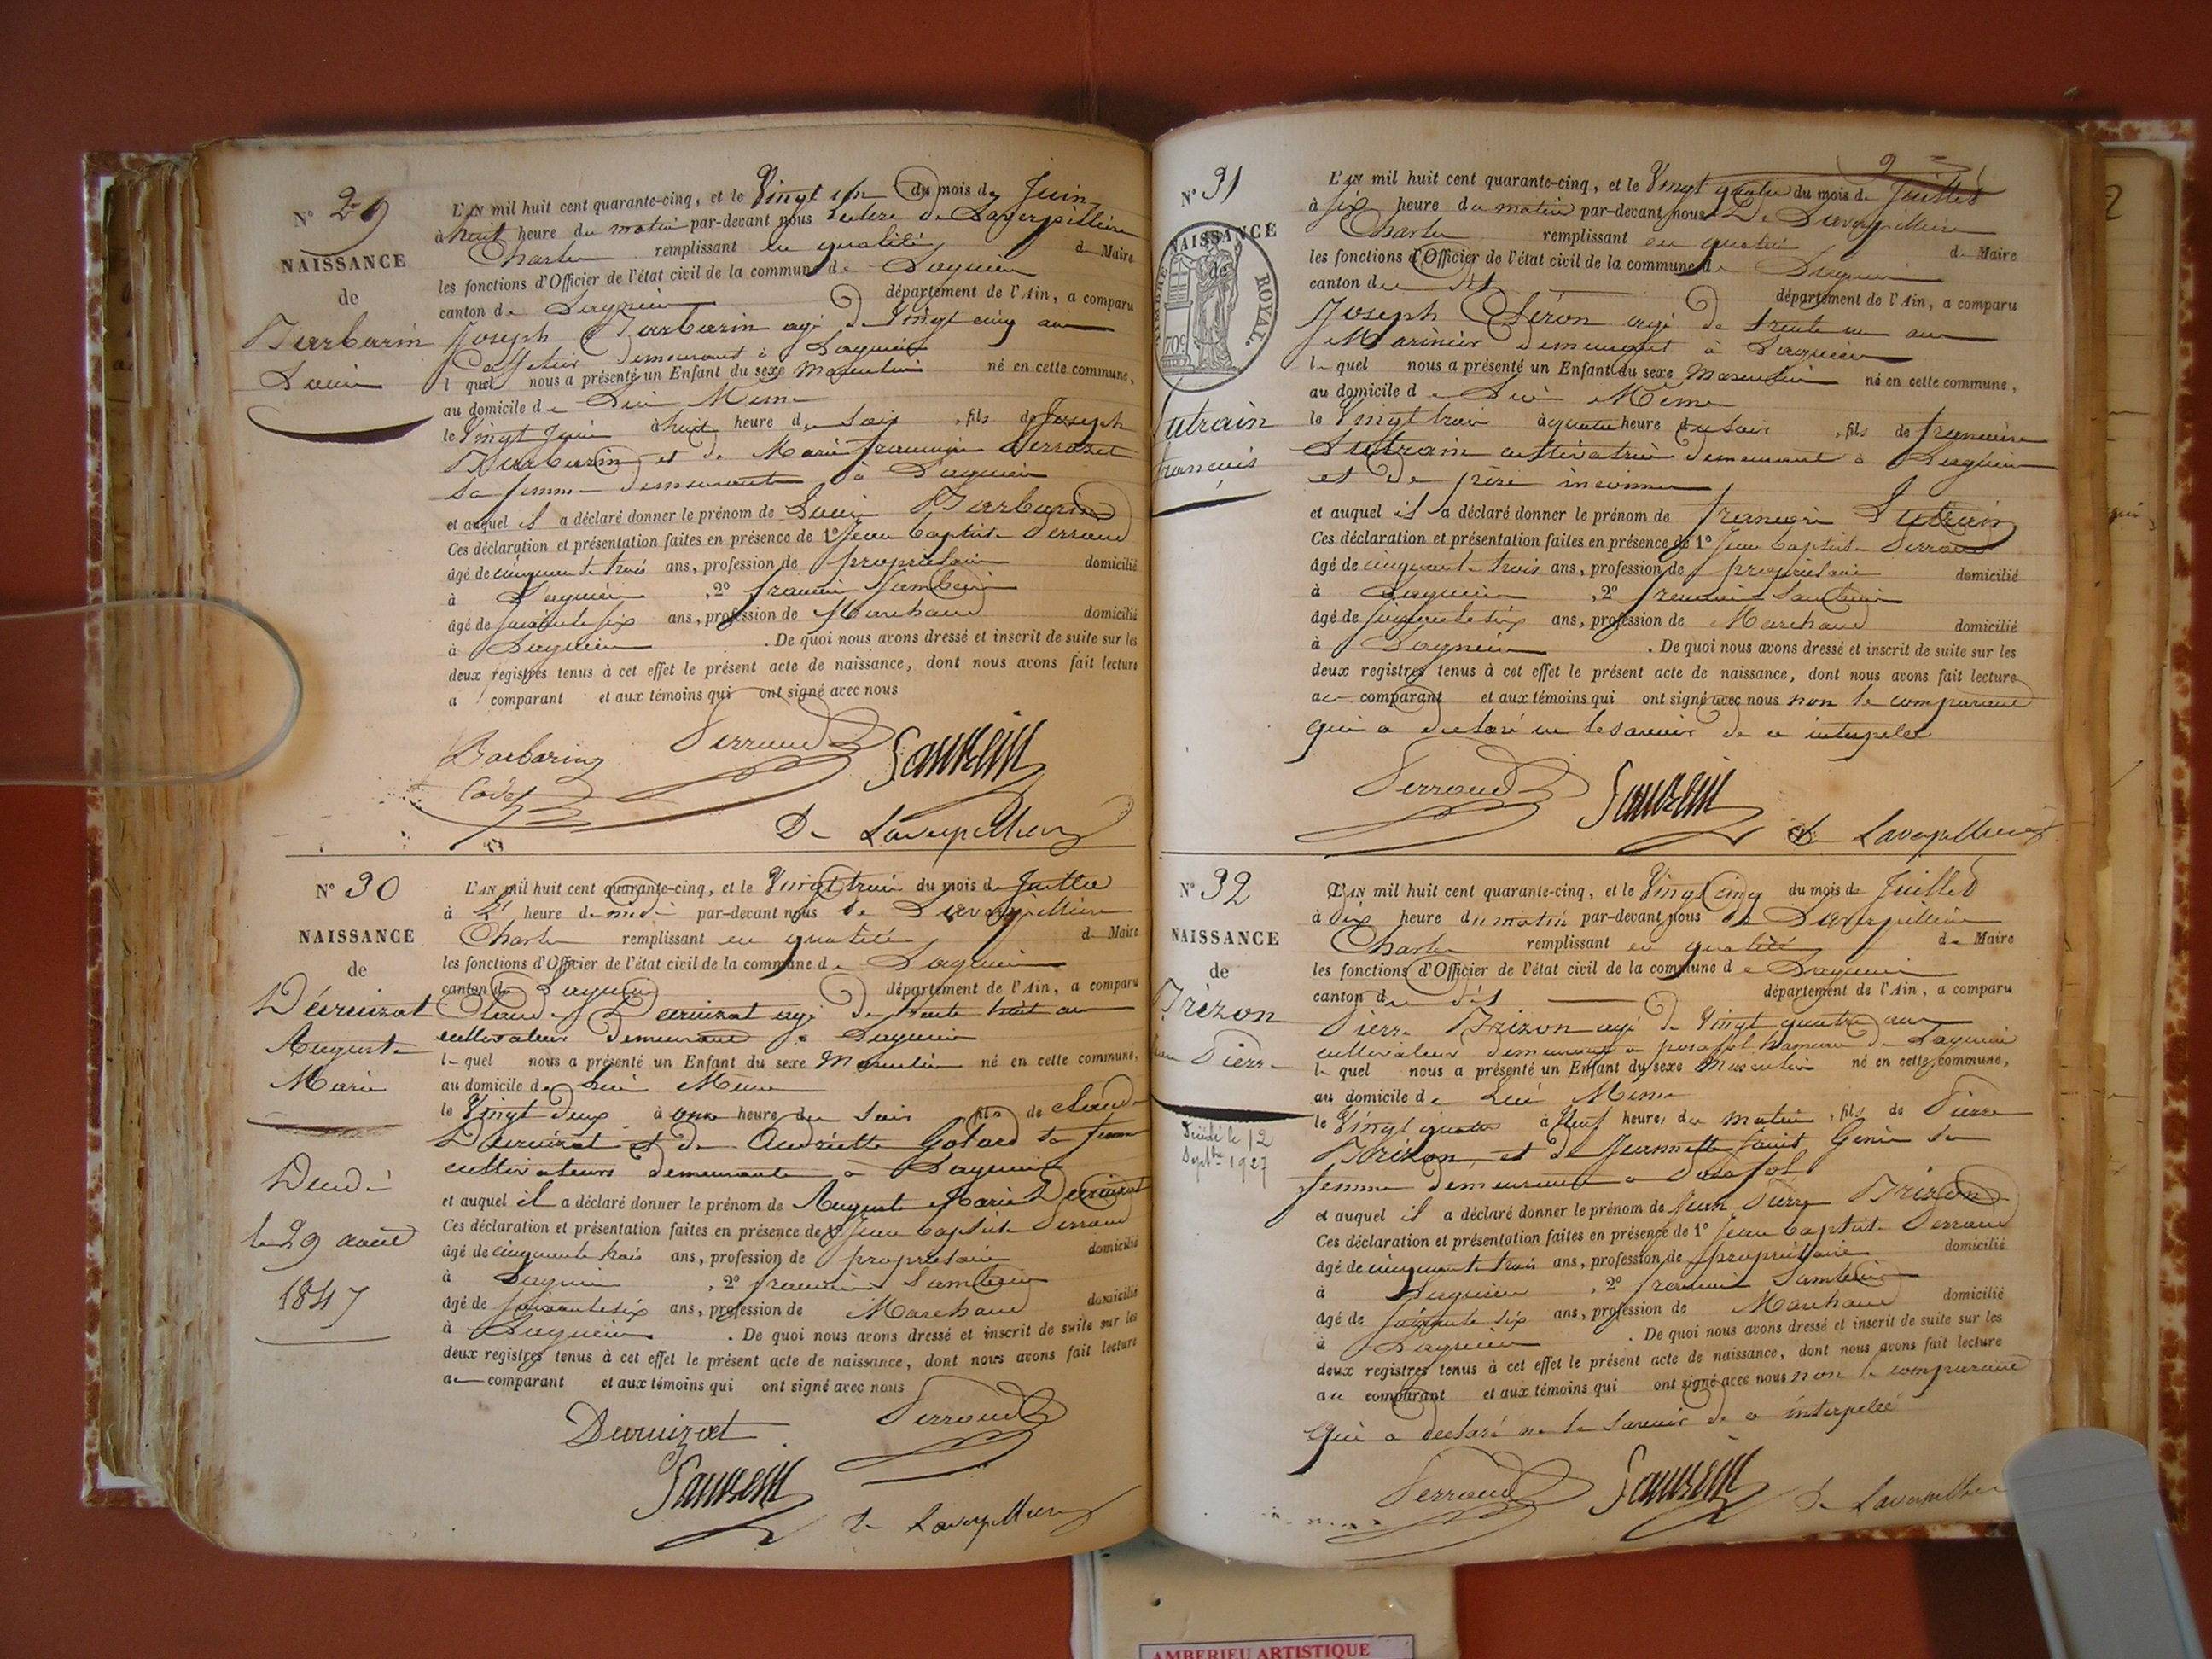 N° 29
NAISSANCE
de
Barbarin
Louis
L'AN mil huit cent quarante-cinq, et le Vingt un du mois de Juin
à huit heure du matin par-devant nous de Laverpillière
Charles remplissant en qualité de Maire
les fonctions d'Officier de l'état civil de la commune de Lagnieu
canton de Lagnieu département de l'Ain, a comparu
Joseph Barbarin agé de Vingt cinq ans
demeurant à Lagnieu
lequel nous a présenté un Enfant du sexe Masculin né en cette commune,
au domicile de Lui Même
le Vingt Juin à huit heure du Soir, fils de Joseph
Barbarin et de Marie françoise
sa femme demeurante à Lagnieu
et auquel il a déclaré donner le prénom de Louis Barbarin
Ces déclaration et présentation faites en présence de 1° Jean baptiste Perroud
âgé de cinquante trois ans, profession de propriétaire domicilié
à Lagnieu, 2° françois
âgé de soixante six ans, profession de Marchand domicilié
à Lagnieu. De quoi nous avons dressé et inscrit de suite sur les
deux registres tenus à cet effet le présent acte de naissance, dont nous avons fait lecture
a comparant et aux témoins qui ont signé avec nous
Barbarin Perroud
Cadet
De Laverpillière
N° 30
NAISSANCE
de
Décruizat
August
Marie
Décédé
le 29 août
1847
L'AN mil huit cent quarante-cinq, et le Vingt trois du mois de Juillet
à heure de midi par-devant nous de Laverpillière
Charles remplissant en qualité de Maire
les fonctions d'Officier de l'état civil de la commune de Lagnieu
canton de Lagnieu département de l'Ain, a comparu
Claude Decruizat agé de trente huit ans
cultivateur demeurant à Lagnieu
lequel nous a présenté un Enfant du sexe Masculin né en cette commune,
au domicile de Lui Même
le Vingt deux à onze heure du Soir fils de Claude
Decruizat et de Andriette Gotard sa femme
cultivateurs demeurante à Lagnieu
et auquel il a déclaré donner le prénom de August Marie Decruizat
Ces déclaration et présentation faites en présence de 1° Jean baptiste Perroud
âgé de cinquante trois ans, profession de propriétaire domicilié
à Lagnieu, 2° françois
âgé de soixante six ans, profession de Marchand domicilié
à Lagnieu. De quoi nous avons dressé et inscrit de suite sur les
deux registres tenus à cet effet le présent acte de naissance, dont nous avons fait lecture
au comparant et aux témoins qui ont signé avec nous
Decruizat Perroud
de Laverpillière
9
N° 31
NAISSANCE
de
TIMBRE ROYAL
70c
Lutrain
françois
L'AN mil huit cent quarante-cinq, et le Vingt quatre du mois de Juillet
à six heure du matin par-devant nous De Laverpillière
Charles remplissant en qualité de Maire
les fonctions d'Officier de l'état civil de la commune de Lagnieu
canton du dit département de l'Ain, a comparu
Joseph Séron agé de trente un ans
Marinier demeurant à Lagnieu
lequel nous a présenté un Enfant du sexe Masculin né en cette commune,
au domicile de Lui Même
le Vingt trois à quatre heure du Soir, fils de françoise
Lutrain cultivatrice demeurant à Lagnieu
et de père inconnu
et auquel il a déclaré donner le prénom de françois Lutrain
Ces déclaration et présentation faites en présence de 1° Jean baptiste Perroud
âgé de cinquante trois ans, profession de propriétaire domicilié
à Lagnieu, 2° françois
âgé de soixante six ans, profession de Marchand domicilié
à Lagnieu. De quoi nous avons dressé et inscrit de suite sur les
deux registres tenus à cet effet le présent acte de naissance, dont nous avons fait lecture
au comparant et aux témoins qui ont signé avec nous non le comparant
qui a déclaré ne le savoir de ce interpelé
Perroud
de Laverpillière
N° 32
NAISSANCE
de
Brizon
Jean Pierre
Décédé le 12
Septbre 1927
L'AN mil huit cent quarante-cinq, et le Vingt cinq du mois de Juillet
à dix heure du matin par-devant nous de Laverpillière
Charles remplissant en qualité de Maire
les fonctions d'Officier de l'état civil de la commune de Lagnieu
canton du dit département de l'Ain, a comparu
Pierre Brizon agé de Vingt quatre ans
cultivateur demeurant à posafol hameau de Lagnieu
lequel nous a présenté un Enfant du sexe Masculin né en cette commune,
au domicile de Lui Même
le Vingt quatre à Neuf heure, du matin, fils de Pierre
Brizon, et de Jeannette sa
femme demeurant à posafol
et auquel il a déclaré donner le prénom de Jean Pierre Brizon
Ces déclaration et présentation faites en présence de 1° Jean baptiste Perroud
âgé de cinquante trois ans, profession de propriétaire domicilié
à Lagnieu, 2° françois
âgé de soixante six ans, profession de Marchand domicilié
à Lagnieu. De quoi nous avons dressé et inscrit de suite sur les
deux registres tenus à cet effet le présent acte de naissance, dont nous avons fait lecture
au comparant et aux témoins qui ont signé avec nous non le comparant
qui a déclaré ne le savoir de ce interpelé
Perroud
de Laverpillière
AMBERIEU ARTISTIQUE